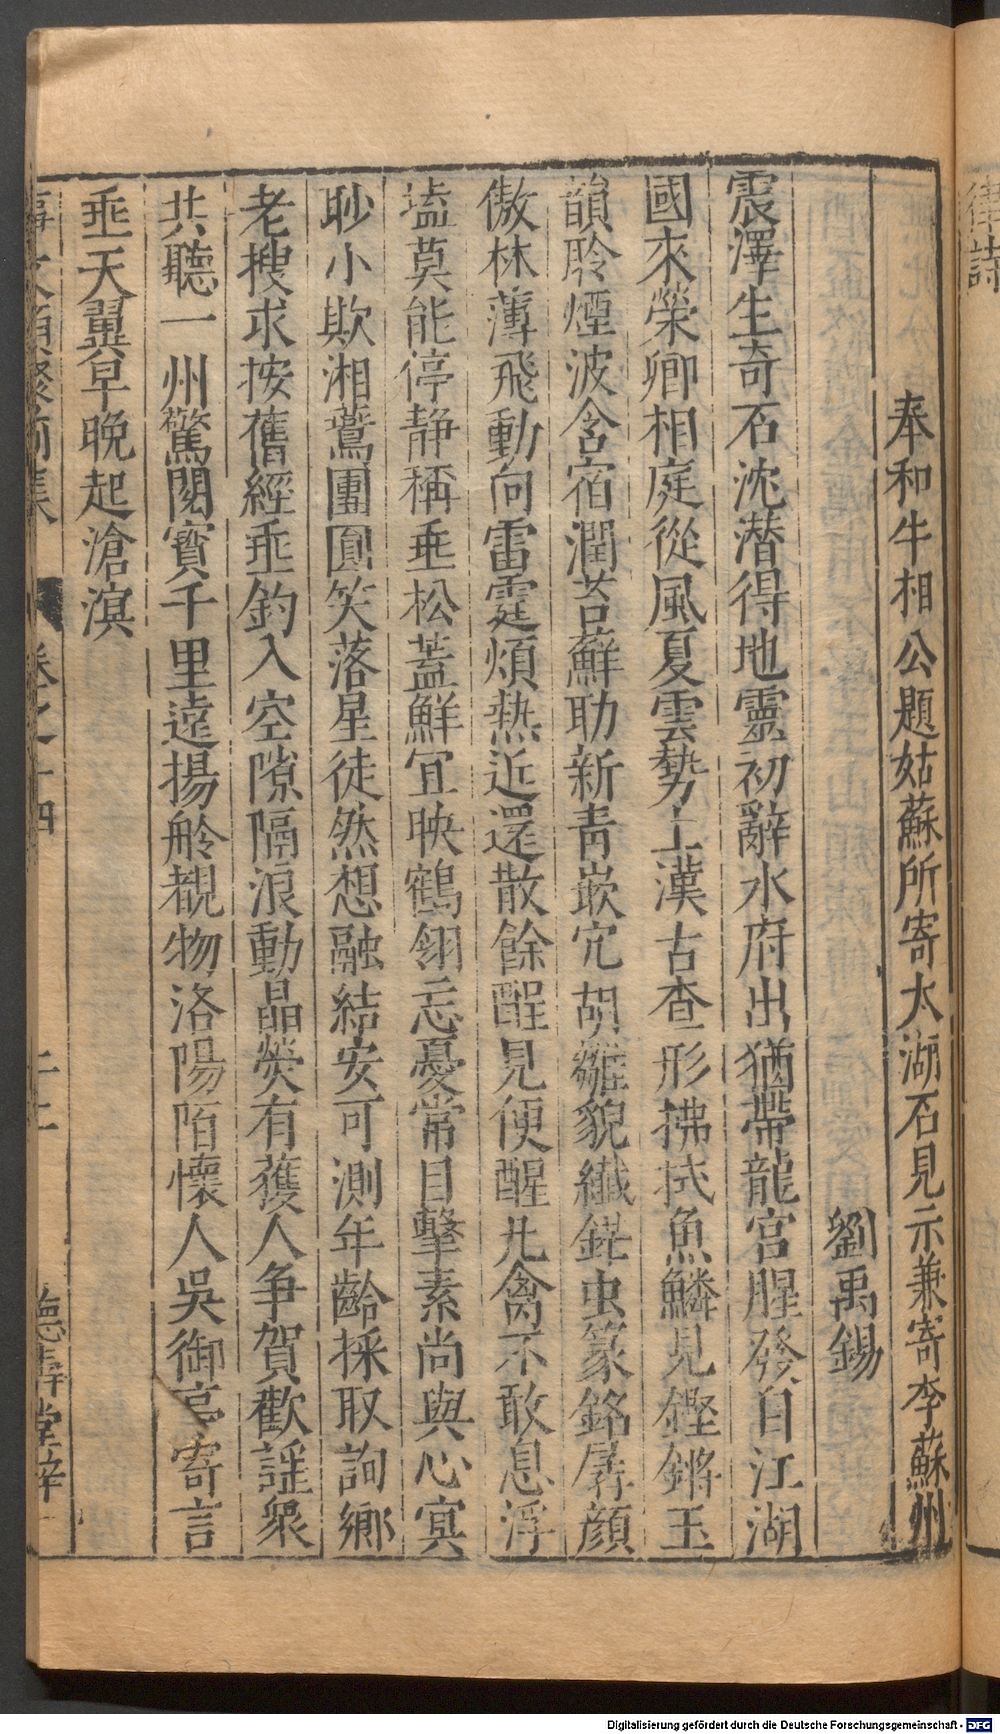 律詩
奉和牛相公題姑蘇所寄太湖石見示兼寄李蘇州
劉禹錫
震澤生奇石沈潛得地靈初辭水府出猶帶龍宮腥發自江湖
國來榮卿相庭從風夏雲勢上漢古查形拂拭魚鱗見鏗鏘玉
韻聆煙波含宿潤苔蘚助新青嵌穴胡雛貌纖鋩虫篆銘孱顏
傲林薄飛動向雷霆煩熱近還散餘酲見便醒凡禽不敢息浮
壒莫能停靜稱垂松蓋鮮宜映鶴翎忘憂常目擊素尚與心冥
眇小欺湘鷰團圓笑落星徒然想融結安可測年齡採取詢鄉
老搜求按舊經垂釣入空隙隔浪動晶熒有獲人爭賀歡謡衆
共聽一州驚閱寳千里遠揚舲覩物洛陽陌懷人吳御亭寄言
垂天翼早晚起滄溟
事文類聚前集 卷之十四 二十二 德壽堂梓
Digitalisierung gefördert durch die Deutsche Forschungsgemeinschaft - DFG